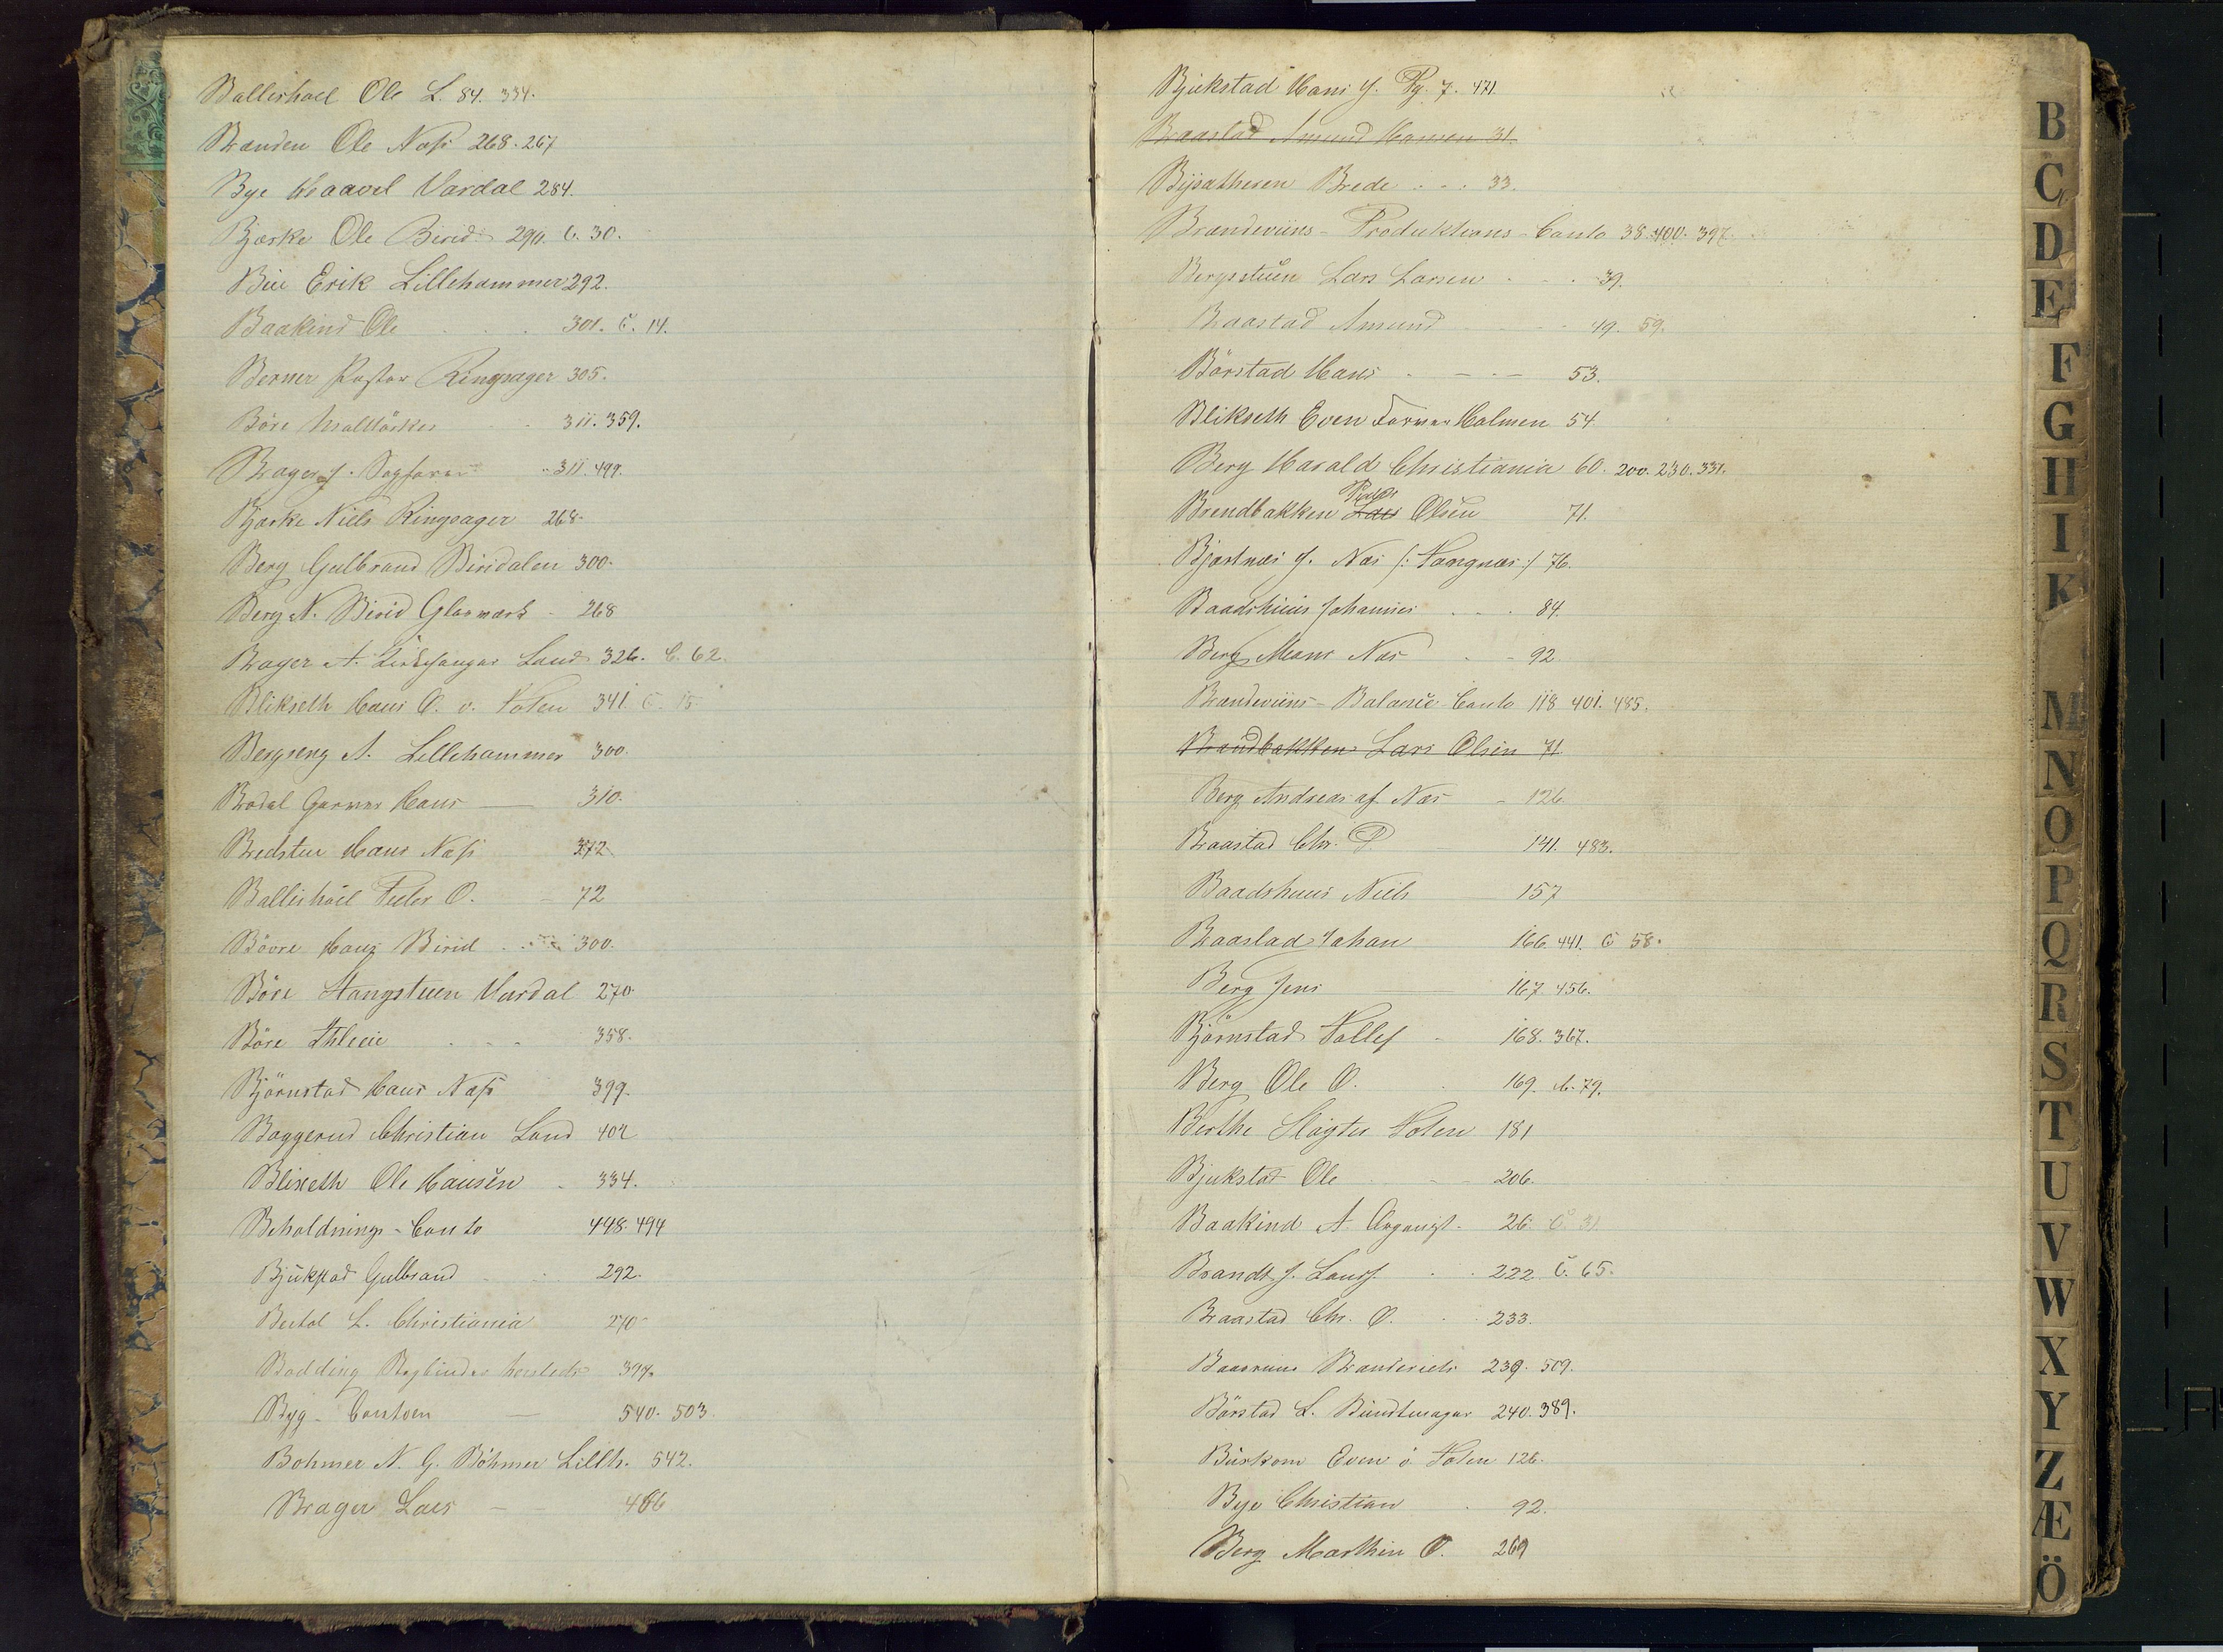 Ballishoel Ole L. 84. 334.
Branden Ole Næss 268. 267
Bye Haavel Vardal 284.
Bjørke Ole Birid 290. C. 30.
Bue Erik Lillehammer 292.
Baakind Ole . . . 301. C. 14.
Berner Pastor Ringsager 305.
Böre 311. 359.
Brager J. Sagfører 311. 499.
Bjørke Niels Ringsager 268.
Berg Gulbrand Biridalen 300.
Berg N. Birid Glasværk - 268
Brager A. Land 326. C. 62.
Blikseth Hans O. v. Toten 341. C. 15.
Bergseng A. Lillehammer 300.
Brodal Garver Hans — 310.
Bredsten Hans Næss 372.
Ballishoel Peder O. - 72
Bövre Hans Birid . . 300.
Böre Stangstuen Vardal 270.
Böre . . - 358.
Björnstad Hans Næss 399.
Baggerud Christian Land 402
Blixeth Ole Hansen - 334.
Beholdnings-Conto 448. 494
Bjükstad Gulbrand 292.
Bertol L. Christiania 270
Bodding Bogbinder 397.
Byg-Contoen — 540. 503
Bohmer N. G. Böhmer Lillh. 542.
Brager Lars — 466
Bjükstad Hans J. Pg. 7. 471.
Braastad Amund Hansen 31.
Brede . . . 33.
Brændeviins-Produktions-Conto 38. 400. 397.
Bergsstuen Lars Larsen . . . 39.
Braastad Amund 49. 59.
Börstad Hans . — . — 53.
Blikseth Even Farver Holmen 54.
Berg Harald Christiania 60. 200. 230. 331.
Brendbakken Lars Peder Olsen 71.
Bjørtnæs J. Næs /: Hangnæs :/ 76.
Baadshuus Johannes . . . 84.
Berg Mons Næs . - 92
Brændeviins-Balance Conto 118 401. 485.
Brendbakken Lars Olsen 71
Berg Andreas af Næs - 126.
Braastad Chr. P. 141. 483.
Baadshuus Niels 157
Braastad Johan 166. 441. C 58.
Berg Jens — 167. 456.
Björnstad Tollef - 168. 367.
Berg Ole O. . 169. C. 79.
Berthe Slagter Toten 181
Bjukstad Ole 206.
Baakind A. Organist. 26. C. 31.
Brandt J. . . 222 C. 65.
Braastad Chr. O. . . 233.
239. 509.
Börstad L. Bundtmager 240. 389.
Even ö Toten 126.
Bye Christian . 92.
Berg Marthin O. 269
B
C
D
E
F
G
H
I
K
M
N
O
P
Q
R
S
T
U
V
W
X
Y
Z
Æ
Ö